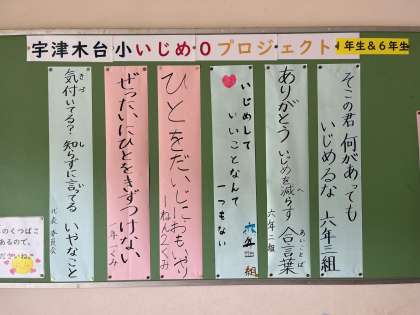 宇津木台小いじめ0プロジェクト 1年生&6年生
そこの君 何があっても
いじめるな 六年三組
ありがとう いじめを減らす 合言葉
六年二組
いじめして
いいことなんて
一つもない
六年一組
ひとをだいじにおもいやり
一ねん2くみ
ぜったいにひとをきずつけない
一年一くみ
気付いてる? 知らずに言ってる いやなこと
代表委員会
のくつばこ
あるので、
ださいね